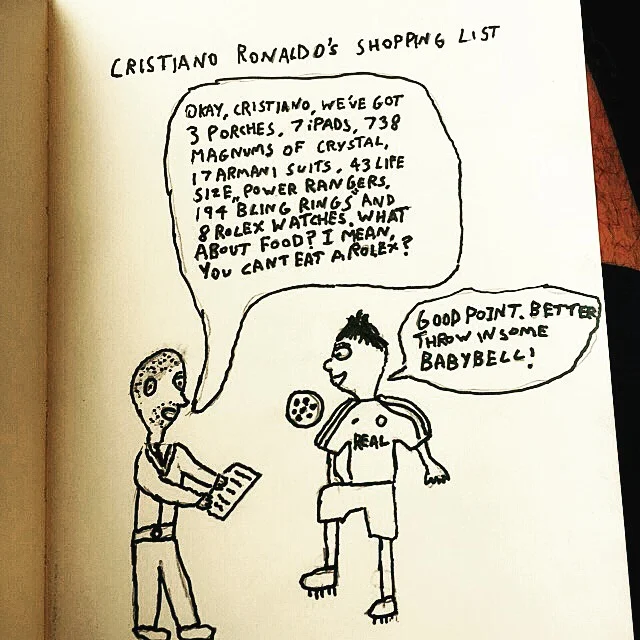 CRISTIANO RONALDO'S SHOPPING LIST
OKAY, CRISTIANO, WE'VE GOT
3 PORCHES, 7 iPADS, 738
MAGNUMS OF CRYSTAL,
17 ARMANI SUITS, 43 LIFE
SIZE POWER RANGERS,
194 "BLING RINGS" AND
8 ROLEX WATCHES. WHAT
ABOUT FOOD? I MEAN,
YOU CAN'T EAT A ROLEX?
GOOD POINT. BETTER
THROW IN SOME
BABYBELL!
REAL